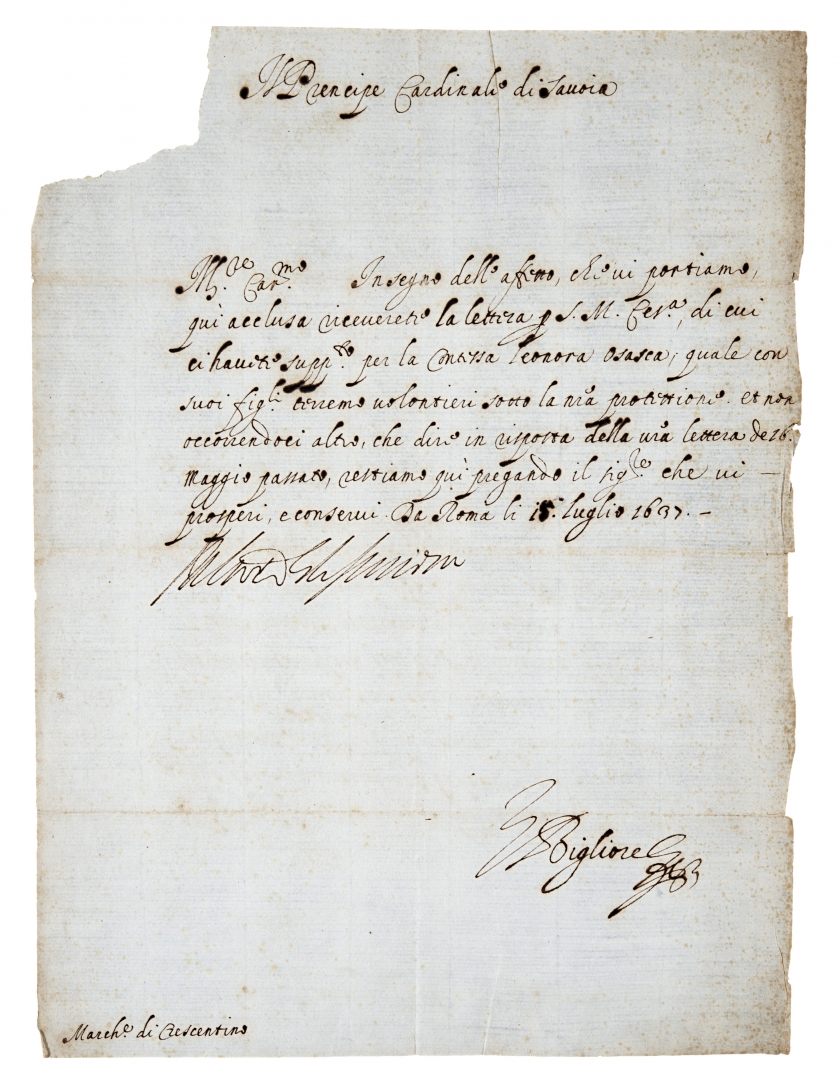 Il Prencipe Cardinale di Savoia
M.re Car.mo Insegno dell'affetto, che vi portiamo,
qui acclusa riceverete la lettera p S. M. Ces.a, di cui
ci havete supp.to per la Contessa Leonora Osasca; quale con
suoi figli terremo volontieri sotto la nra protettione. et non
occorrendoci altro, che dire in risposta della vra lettera de 16.
Maggio passato, restiamo qui pregando il sig.re che vi —
prosperi, e conservi. Da Roma li 15. luglio 1637. —
Bigliore
March.e di Crescentino